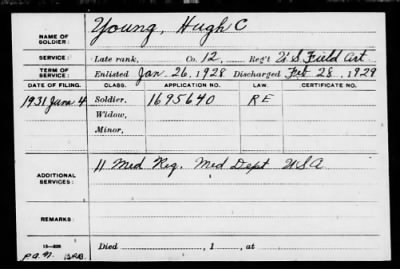 NAME OF SOLDIER: Young, Hugh C
SERVICE: Late rank, Co. 12, Reg't U S Field Art
TERM OF SERVICE: Enlisted Jan. 26, 1928 Discharged Feb 28, 1929
DATE OF FILING. CLASS. APPLICATION NO. LAW. CERTIFICATE NO.
1931 June 4 Soldier, 1695640 RE
Widow,
Minor,
ADDITIONAL SERVICES: 11 Med Reg. Med Dept USA
REMARKS:
Died , 1 , at